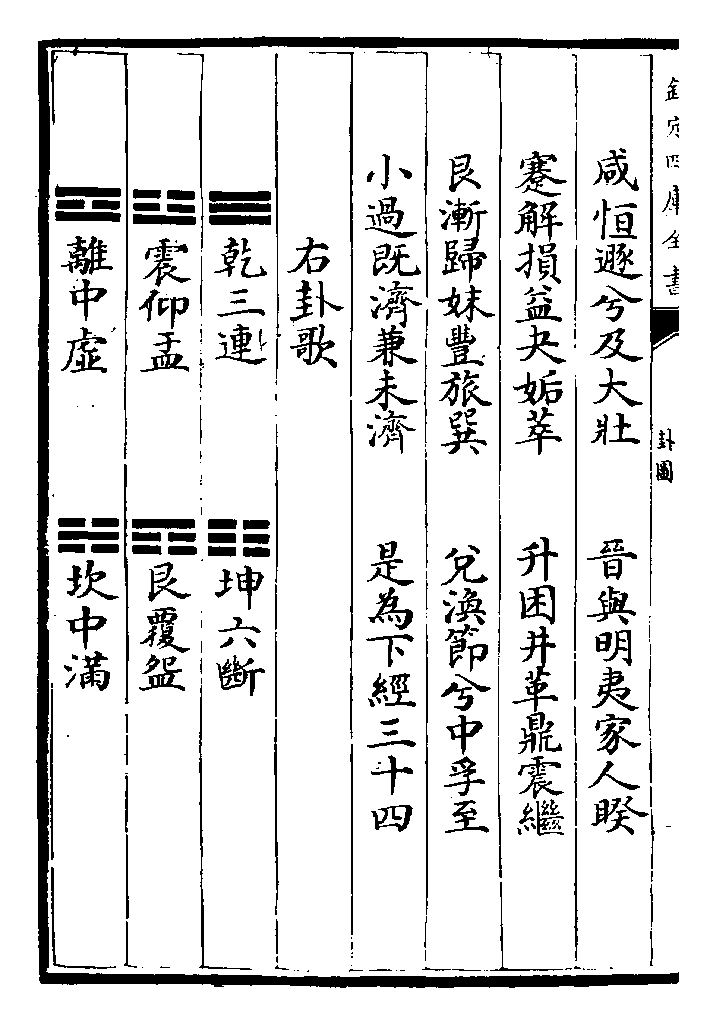 欽定四庫全書
卦圖
咸恒遯兮及大壯　晉與明夷家人睽
蹇解損益夬姤萃　升困井革鼎震繼
艮漸歸妹豐旅巽　兌渙節兮中孚至
小過既濟兼未濟　是為下經三十四
右卦歌
☰乾三連　☷坤六斷
☳震仰盂　☶艮覆盌
☲離中虛　☵坎中滿